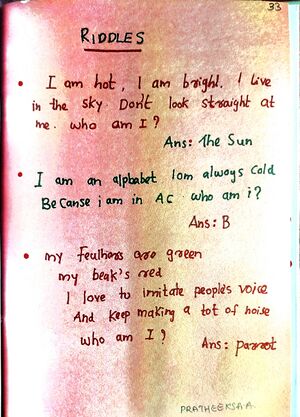 33
RIDDLES
I am hot, I am bright. I live
in the sky. Don't look straight at
me. who am I?
Ans: The Sun
I am an alphabet Iam always Cold
Because i am in AC who am i?
Ans: B
my Feathers are green
my beak's red
I love to imitate people's voice
And Keep making a lot of noise
who am I?
Ans: parrot
PRATHEEKSA A